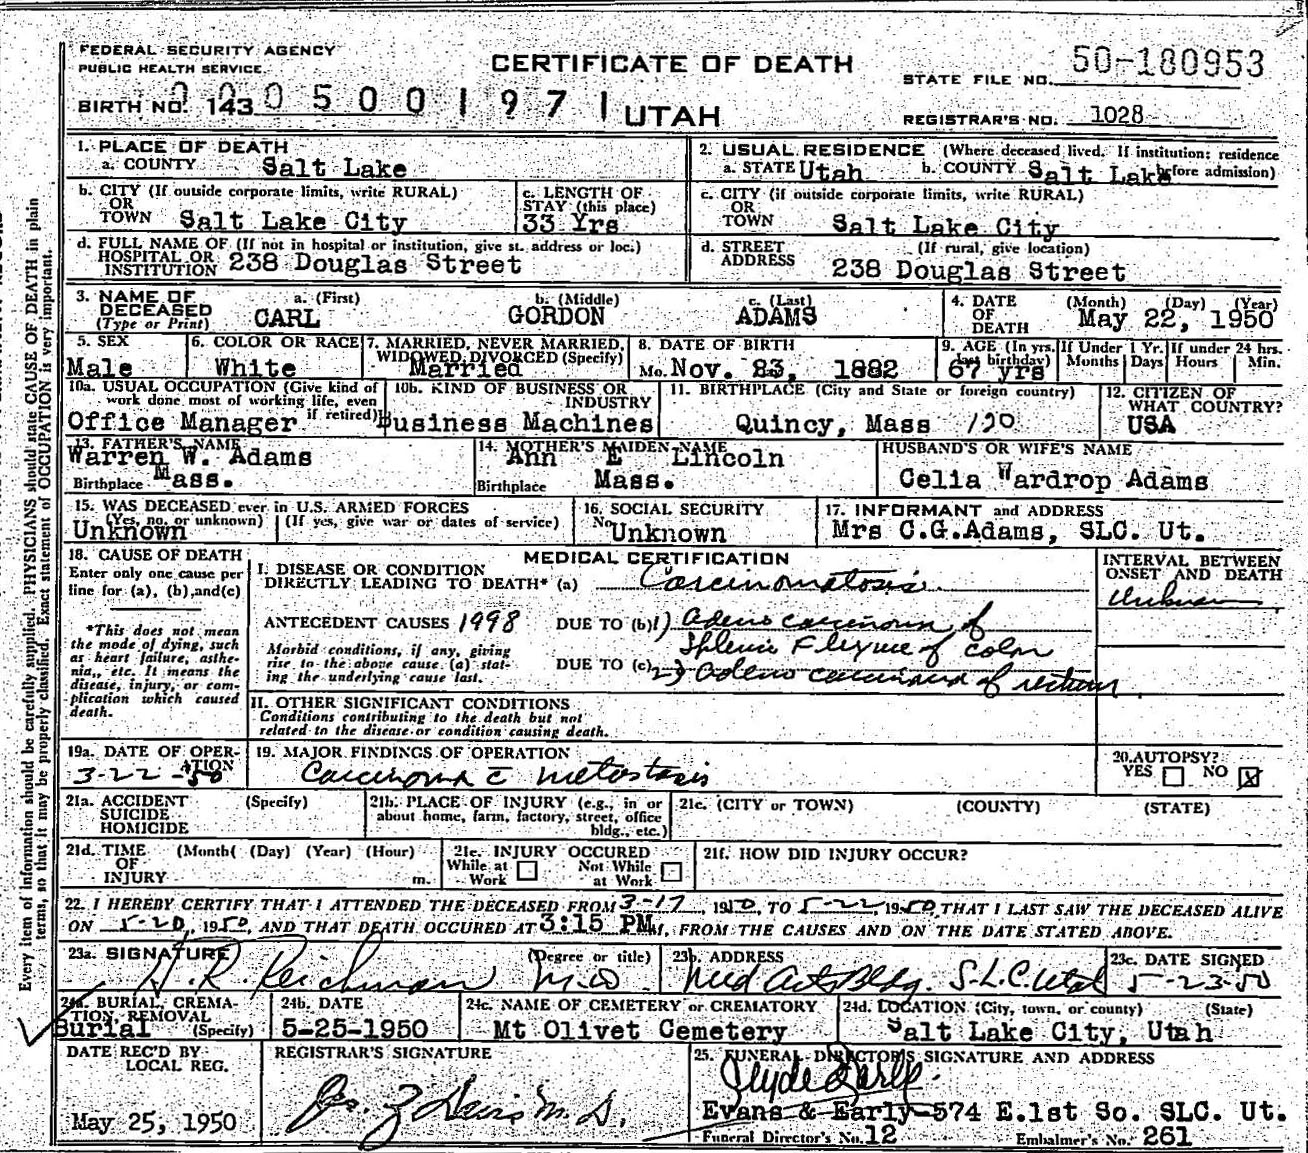 FEDERAL SECURITY AGENCY
PUBLIC HEALTH SERVICE
CERTIFICATE OF DEATH
STATE FILE NO. 50-180953
BIRTH NO. 143 0 5 0 0 1 9 7 1 UTAH
REGISTRAR'S NO. 1028
1. PLACE OF DEATH
a. COUNTY Salt Lake
2. USUAL RESIDENCE (Where deceased lived. If institution: residence
a. STATE Utah b. COUNTY Salt Lake before admission)
b. CITY (If outside corporate limits, write RURAL)
OR
TOWN Salt Lake City
c. LENGTH OF
STAY (this place)
33 Yrs
c. CITY (if outside corporate limits, write RURAL)
OR
TOWN Salt Lake City
d. FULL NAME OF (If not in hospital or institution, give st. address or loc.)
HOSPITAL OR
INSTITUTION 238 Douglas Street
d. STREET (If rural, give location)
ADDRESS 238 Douglas Street
3. NAME OF a. (First) b. (Middle) c. (Last)
DECEASED
(Type or Print) CARL GORDON ADAMS
4. DATE (Month) (Day) (Year)
OF
DEATH May 22, 1950
5. SEX
Male
6. COLOR OR RACE
White
7. MARRIED, NEVER MARRIED,
WIDOWED, DIVORCED (Specify)
Married
8. DATE OF BIRTH
Mo. Nov. 23, 1882
9. AGE (In yrs. last birthday)
67 yrs
If Under 1 Yr.
Months Days
If under 24 hrs.
Hours Min.
10a. USUAL OCCUPATION (Give kind of
work done most of working life, even
if retired)
Office Manager
10b. KIND OF BUSINESS OR
INDUSTRY
Business Machines
11. BIRTHPLACE (City and State or foreign country)
Quincy, Mass 120
12. CITIZEN OF
WHAT COUNTRY?
USA
13. FATHER'S NAME
Warren W. Adams
Birthplace Mass.
14. MOTHER'S MAIDEN NAME
Ann E Lincoln
Birthplace Mass.
HUSBAND'S OR WIFE'S NAME
Celia Wardrop Adams
15. WAS DECEASED ever in U.S. ARMED FORCES
(Yes, no, or unknown) (If yes, give war or dates of service)
Unknown
16. SOCIAL SECURITY
No. Unknown
17. INFORMANT and ADDRESS
Mrs C.G.Adams, SLC. Ut.
18. CAUSE OF DEATH
Enter only one cause per
line for (a), (b), and (c)
*This does not mean
the mode of dying, such
as heart failure, asthe-
nia, etc. It means the
disease, injury, or com-
plication which caused
death.
MEDICAL CERTIFICATION
I. DISEASE OR CONDITION
DIRECTLY LEADING TO DEATH* (a) Carcinomatosis
ANTECEDENT CAUSES 1998 DUE TO (b) 1) Adeno carcinoma of
Splenic Flexure of colon
Morbid conditions, if any, giving
rise to the above cause (a) stat-
ing the underlying cause last.
DUE TO (c) 2) Adeno carcinoma of rectum
II. OTHER SIGNIFICANT CONDITIONS
Conditions contributing to the death but not
related to the disease or condition causing death.
INTERVAL BETWEEN
ONSET AND DEATH
Unknown
19a. DATE OF OPER-
ATION
3-22-50
19. MAJOR FINDINGS OF OPERATION
Carcinoma c̄ metastasis
20. AUTOPSY?
YES ☐ NO ☒
21a. ACCIDENT (Specify)
SUICIDE
HOMICIDE
21b. PLACE OF INJURY (e.g., in or
about home, farm, factory, street, office
bldg., etc.)
21c. (CITY or TOWN) (COUNTY) (STATE)
21d. TIME (Month( (Day) (Year) (Hour)
OF
INJURY m.
21e. INJURY OCCURED
While at Work ☐ Not While at Work ☐
21f. HOW DID INJURY OCCUR?
22. I HEREBY CERTIFY THAT I ATTENDED THE DECEASED FROM 3-17, 1950, TO 5-22, 1950, THAT I LAST SAW THE DECEASED ALIVE
ON 5-20, 1950, AND THAT DEATH OCCURED AT 3:15 PM, FROM THE CAUSES AND ON THE DATE STATED ABOVE.
23a. SIGNATURE (Degree or title)
H. R. Reichman M.D
23b. ADDRESS
Med Arts Bldg. S.L.C. Utah
23c. DATE SIGNED
5-23-50
24a. BURIAL, CREMA-
TION, REMOVAL
Burial (Specify)
24b. DATE
5-25-1950
24c. NAME OF CEMETERY or CREMATORY
Mt Olivet Cemetery
24d. LOCATION (City, town, or county) (State)
Salt Lake City, Utah
DATE REC'D BY
LOCAL REG.
May 25, 1950
REGISTRAR'S SIGNATURE
25. FUNERAL DIRECTOR'S SIGNATURE AND ADDRESS
Clyde Early
Evans & Early-574 E.1st So. SLC. Ut.
Funeral Director's No. 12 Embalmer's No. 261
Every item of information should be carefully supplied. PHYSICIANS should state CAUSE OF DEATH in plain
terms, so that it may be properly classified. Exact statement of OCCUPATION is very important.